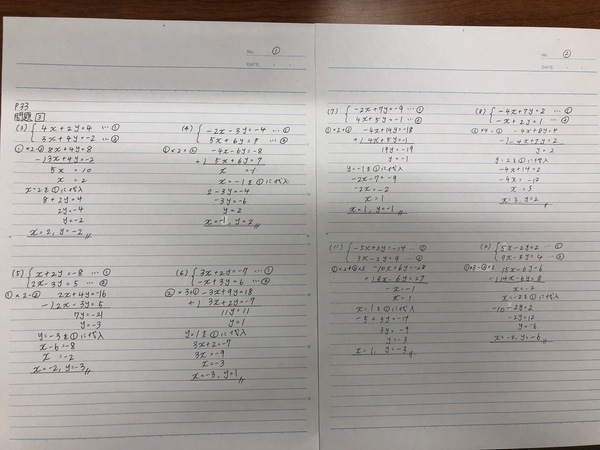 No. ①
DATE
P33
問題 3
(3) { 4x+2y=4 … ①
3x+4y=-2 … ②
①×2 8x+4y=8
-) 3x+4y=-2
5x = 10
x = 2
x=2を①に代入
8+2y=4
2y=-4
y=-2
x=2, y=-2
(4) { -2x-3y=-4 … ①
5x+6y=7 … ②
①×2 -4x-6y=-8
+) 5x+6y=7
x = -1
x=-1を①に代入
2-3y=-4
-3y=-6
y=2
x=-1, y=2
(5) { x+2y=-8 … ①
2x-3y=5 … ②
①×2-② 2x+4y=-16
-) 2x-3y=5
7y=-21
y=-3
y=-3を①に代入
x-6=-8
x = -2
x=-2, y=-3
(6) { 3x+2y=-7 … ①
-x+3y=6 … ②
②×3+① -3x+9y=18
+) 3x+2y=-7
11y=11
y=1
y=1を①に代入
3x+2=-7
3x=-9
x=-3
x=-3, y=1
No. ②
DATE
(7) { -2x+7y=-9 … ①
4x+5y=-1 … ②
①×2+② -4x+14y=-18
+) 4x+5y=-1
19y=-19
y=-1
y=-1を①に代入
-2x-7=-9
-2x=-2
x=1
x=1, y=-1
(8) { -4x+7y=2 … ①
-x+2y=1 … ②
-4x+8y=4
-) -4x+7y=2
y=2
y=2を①に代入
-4x+14=2
-4x=-12
x=3
x=3, y=2
{ -5x+3y=-14 … ①
3x-2y=9 … ②
①×2+②×3 -10x+6y=-28
x=1
x=1を①に代入
-5+3y=-14
3y=-9
y=-3
x=1, y=-3
{ 5x-2y=2 … ①
15x-6y=6
x=-2
x=-2を①に代入
-10-2y=2
-2y=12
y=-6
x=-2, y=-6